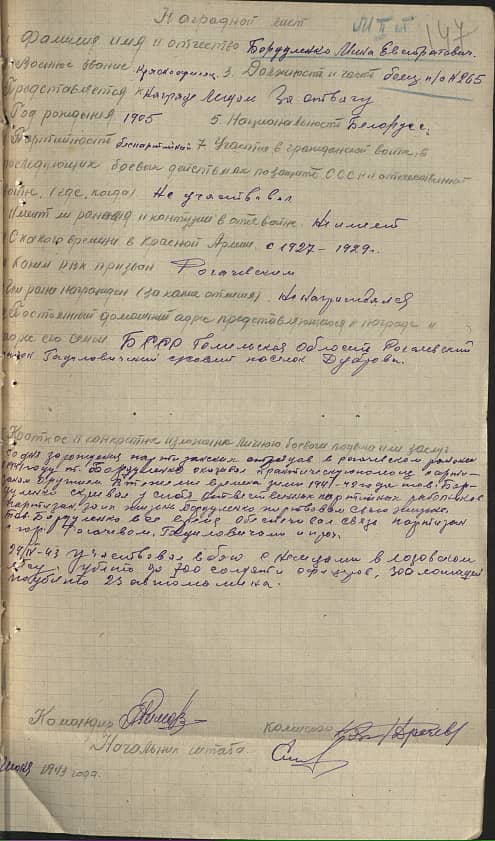 Наградной лист
147
Фамилия имя и отчество Бордуленко Мина Евстратович.
Военное звание Красноармеец. 3. Должность и часть боец п/о №265
Представляется к награде Медаль За отвагу
Год рождения 1905 5. Национальность Белорусс.
Партийность беспартийный 7 Участие в гражданской войне, в
последующих боевых действиях по защите СССР и отечественной
войне. (где, когда) Не участвовал
Имеет ли ранения и контузии в отечвойне. Не имеет
С какого времени в Красной Армии. с 1927 - 1929г.
Каким РВК призван Рогачевским
Чем ранее награжден (за какие отличия). Не награждался
Постоянный домашний адрес представляемого к награде и
адрес его семьи БССР Гомельская область Рогачевский
район Гадиловичский сельсовет поселок Дубровы.
Краткое и конкретное изложение личного боевого подвига или заслуг
Со дня зарождения партизанских отрядов в рогачевском районе
1941 году т. Бордуленко оказывал практическую помощь парти-
занам оружием В течении времени зимы 1941-42 года тов. Бор-
дуленко скрывал у себя ответственных партийных работников
партизан, за их жизнь Бордуленко жертвовал своею жизнью.
Тов. Бордуленко все время обеспечивал связь партизан
с гор. Рогачевом, Гадиловичами и др.
29/IV-43 участвовал в бою с немцами в лозовском
лесу, убито до 700 солдат и офицеров, 300 лошадей
подбито 23 автомашины.
Командир комиссар
Начальник штаба
июня 1943 года.